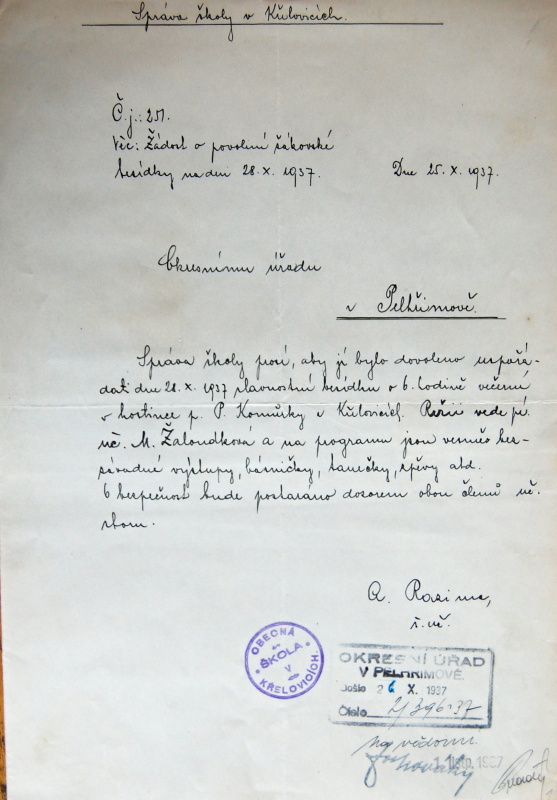 Správa školy v Křelovicích.
Č.j.: 251.
Věc: Žádost o povolení žákovské
besídky na den 28. X. 1937. Dne 25. X. 1937.
Okresnímu úřadu
v Pelhřimově.
Správa školy prosí, aby jí bylo dovoleno uspořá-
dati dne 28. X. 1937 slavnostní besídku o 6. hodině večerní
v hostinci p. P. v Křelovicích. Režii vede pí
uč. M. a na programu jsou vesměs bez-
závadné výstupy, básničky, tanečky, zpěvy atd.
O bezpečnost bude postaráno dozorem obou členů uč.
sboru.
A. Rozima,
ř. uč.
OBECNÁ
ŠKOLA
V
KŘELOVICÍCH.
OKRESNÍ ÚŘAD
V PELHŘIMOVĚ.
Došlo 26 X. 1937
Číslo 21396-37
Na vědomí.
1937